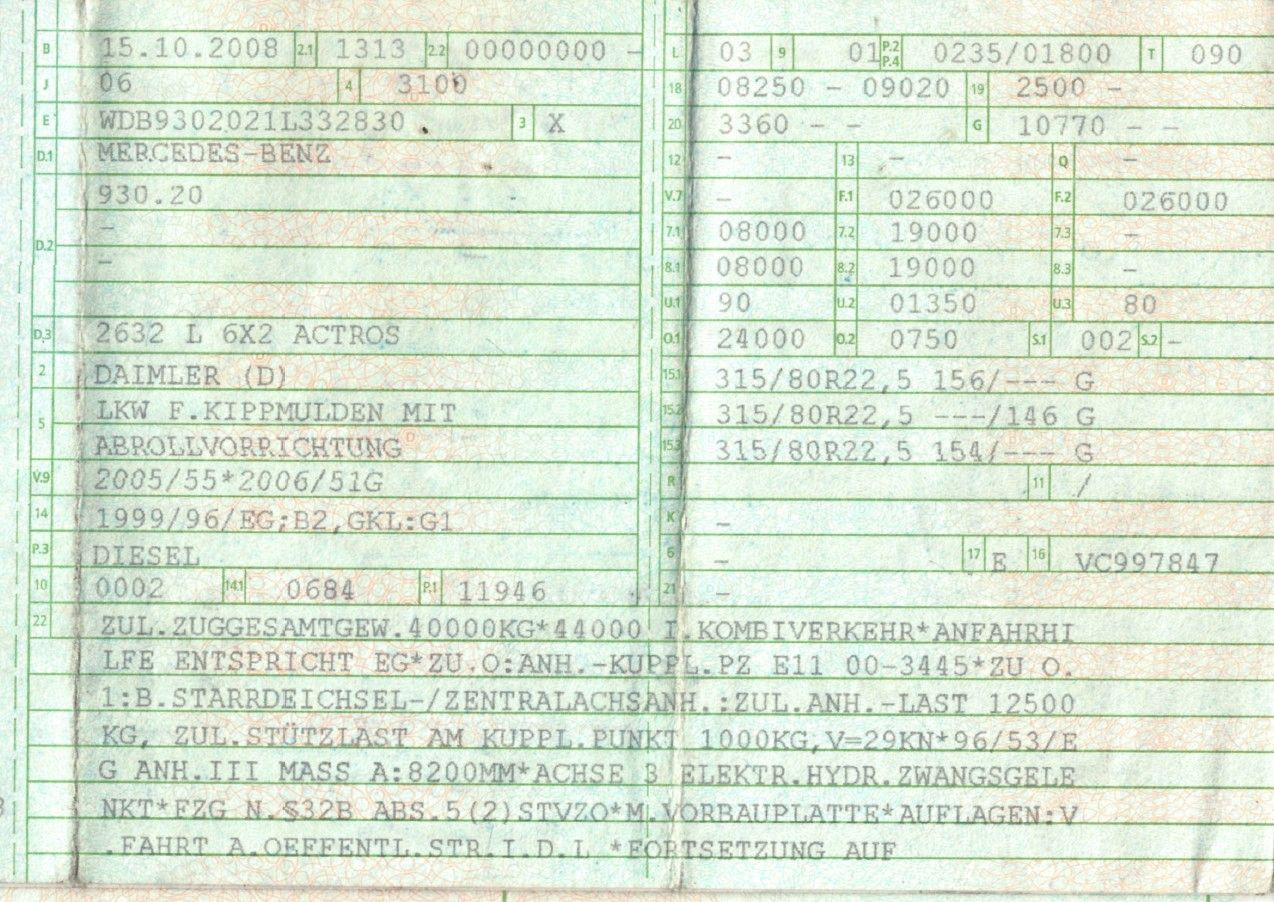 B 15.10.2008 2.1 1313 2.2 00000000 -
J 06 4 3100
E WDB9302021L332830 3 X
D.1 MERCEDES-BENZ
930.20
D.2 -
-
D.3 2632 L 6X2 ACTROS
2 DAIMLER (D)
5 LKW F.KIPPMULDEN MIT
ABROLLVORRICHTUNG
V.9 2005/55*2006/51G
14 1999/96/EG;B2,GKL:G1
P.3 DIESEL
10 0002 14.1 0684 P.1 11946
L 03 9 01 P.2 P.4 0235/01800 T 090
18 08250 - 09020 19 2500 -
20 3360 - - G 10770 - -
12 - 13 - Q -
V.7 - F.1 026000 F.2 026000
7.1 08000 7.2 19000 7.3 -
8.1 08000 8.2 19000 8.3 -
U.1 90 U.2 01350 U.3 80
O.1 24000 O.2 0750 S.1 002 S.2 -
15.1 315/80R22,5 156/--- G
15.2 315/80R22,5 ---/146 G
15.3 315/80R22,5 154/--- G
R 11 /
K -
6 - 17 E 16 VC997847
21 -
22 ZUL.ZUGGESAMTGEW.40000KG*44000 I.KOMBIVERKEHR*ANFAHRHI
LFE ENTSPRICHT EG*ZU.O:ANH.-KUPPL.PZ E11 00-3445*ZU O.
1:B.STARRDEICHSEL-/ZENTRALACHSANH.:ZUL.ANH.-LAST 12500
KG, ZUL.STÜTZLAST AM KUPPL.PUNKT 1000KG,V=29KN*96/53/E
G ANH.III MASS A:8200MM*ACHSE 3 ELEKTR.HYDR.ZWANGSGELE
NKT*FZG N.§32B ABS.5(2)STVZO*M.VORBAUPLATTE*AUFLAGEN:V
.FAHRT A.OEFFENTL.STR.I.D.L *FORTSETZUNG AUF